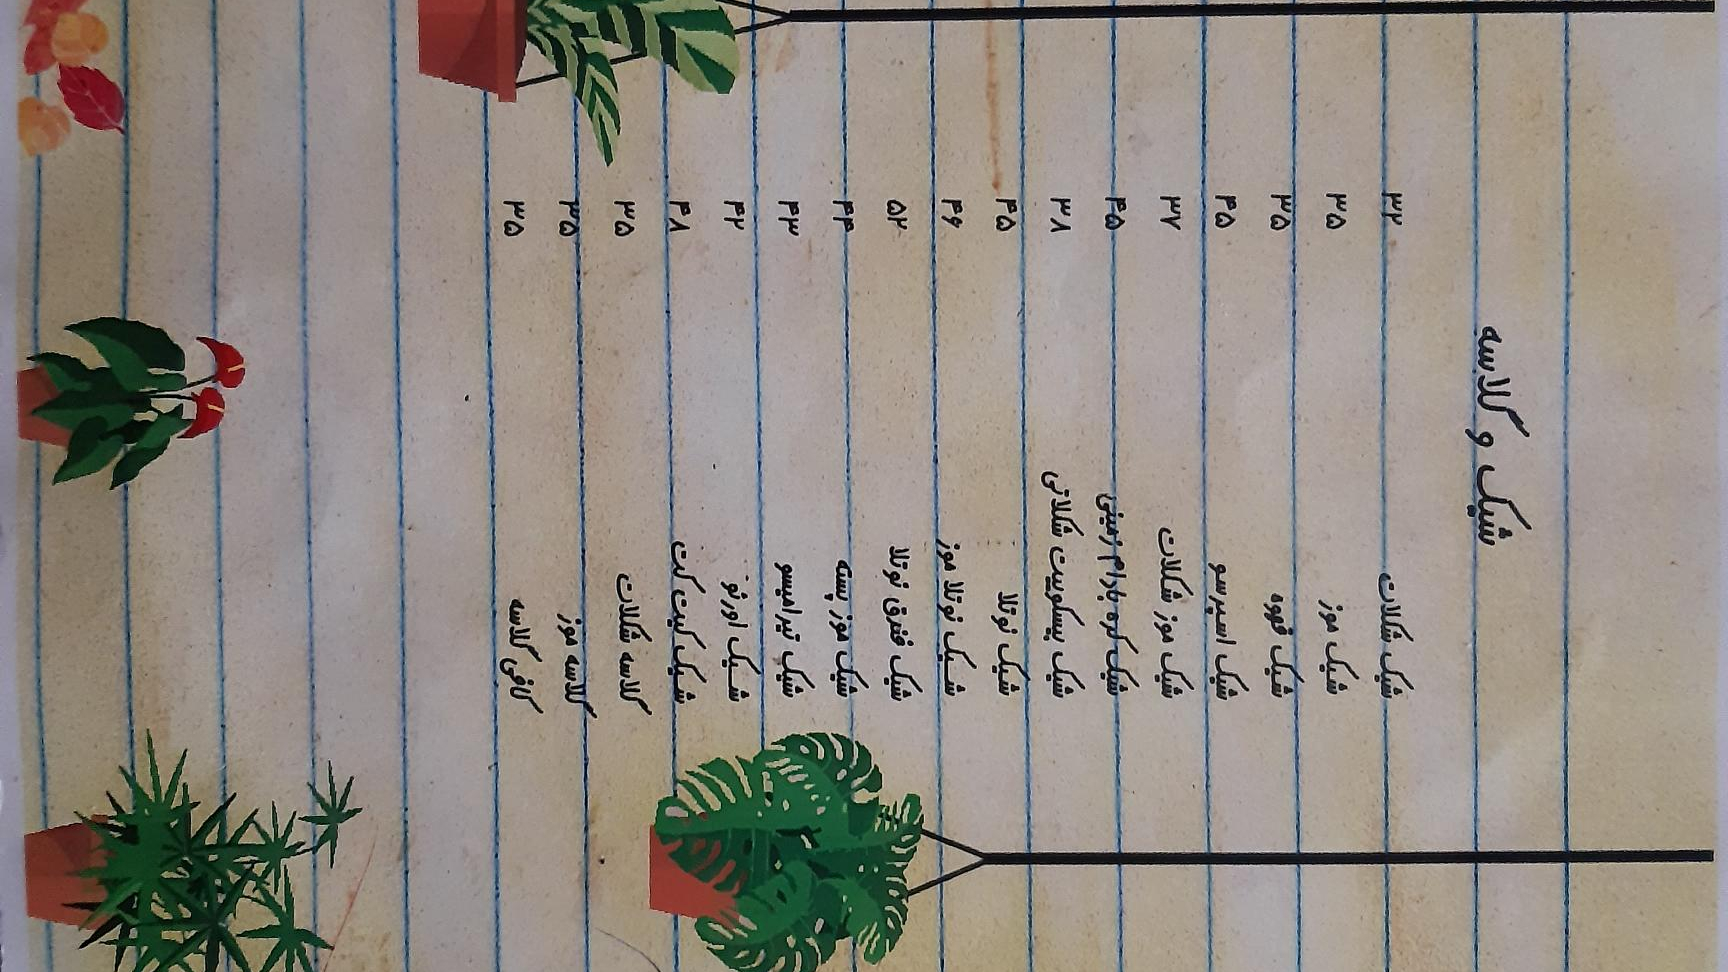 شیک و گلاسه
شیک شکلات ۳۲
شیک موز ۳۵
شیک قهوه ۳۵
شیک اسپرسو ۴۵
شیک موز شکلات ۳۷
شیک کره بادام زمینی ۴۵
شیک بیسکوییت شکلاتی ۳۸
شیک نوتلا ۴۵
شیک نوتلا موز ۴۶
شیک فندق نوتلا ۵۲
شیک موز پسته ۴۴
شیک تیرامیسو ۴۳
شیک اورئو ۴۲
شیک کیت کت ۴۸
گلاسه شکلات ۳۵
گلاسه موز ۳۵
کافی گلاسه ۳۵